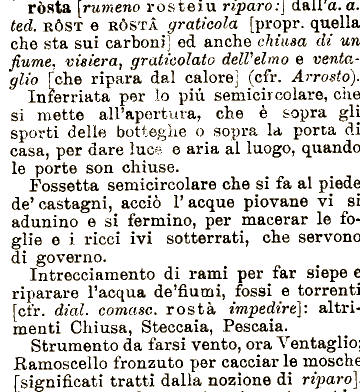 ròsta [rumeno rosteiu riparo:] dall'a. a.
ted. RÔST e RÔSTÂ graticola [propr. quella
che sta sui carboni] ed anche chiusa di un
fiume, visiera, graticolato dell'elmo e venta-
glio [che ripara dal calore] (cfr. Arrosto).
Inferriata per lo piú semicircolare, che
si mette all'apertura, che è sopra gli
sporti delle botteghe o sopra la porta di
casa, per dare luce e aria al luogo, quando
le porte son chiuse.
Fossetta semicircolare che si fa al piede
de' castagni, acciò l'acque piovane vi si
adunino e si fermino, per macerar le fo-
glie e i ricci ivi sotterrati, che servono
di governo.
Intrecciamento di rami per far siepe e
riparare l'acqua de'fiumi, fossi e torrenti
[cfr. dial. comasc. rostà impedire]: altri-
menti Chiusa, Steccaia, Pescaia.
Strumento da farsi vento, ora Ventaglio;
Ramoscello fronzuto per cacciar le mosche
[significati tratti dalla nozione di riparo]